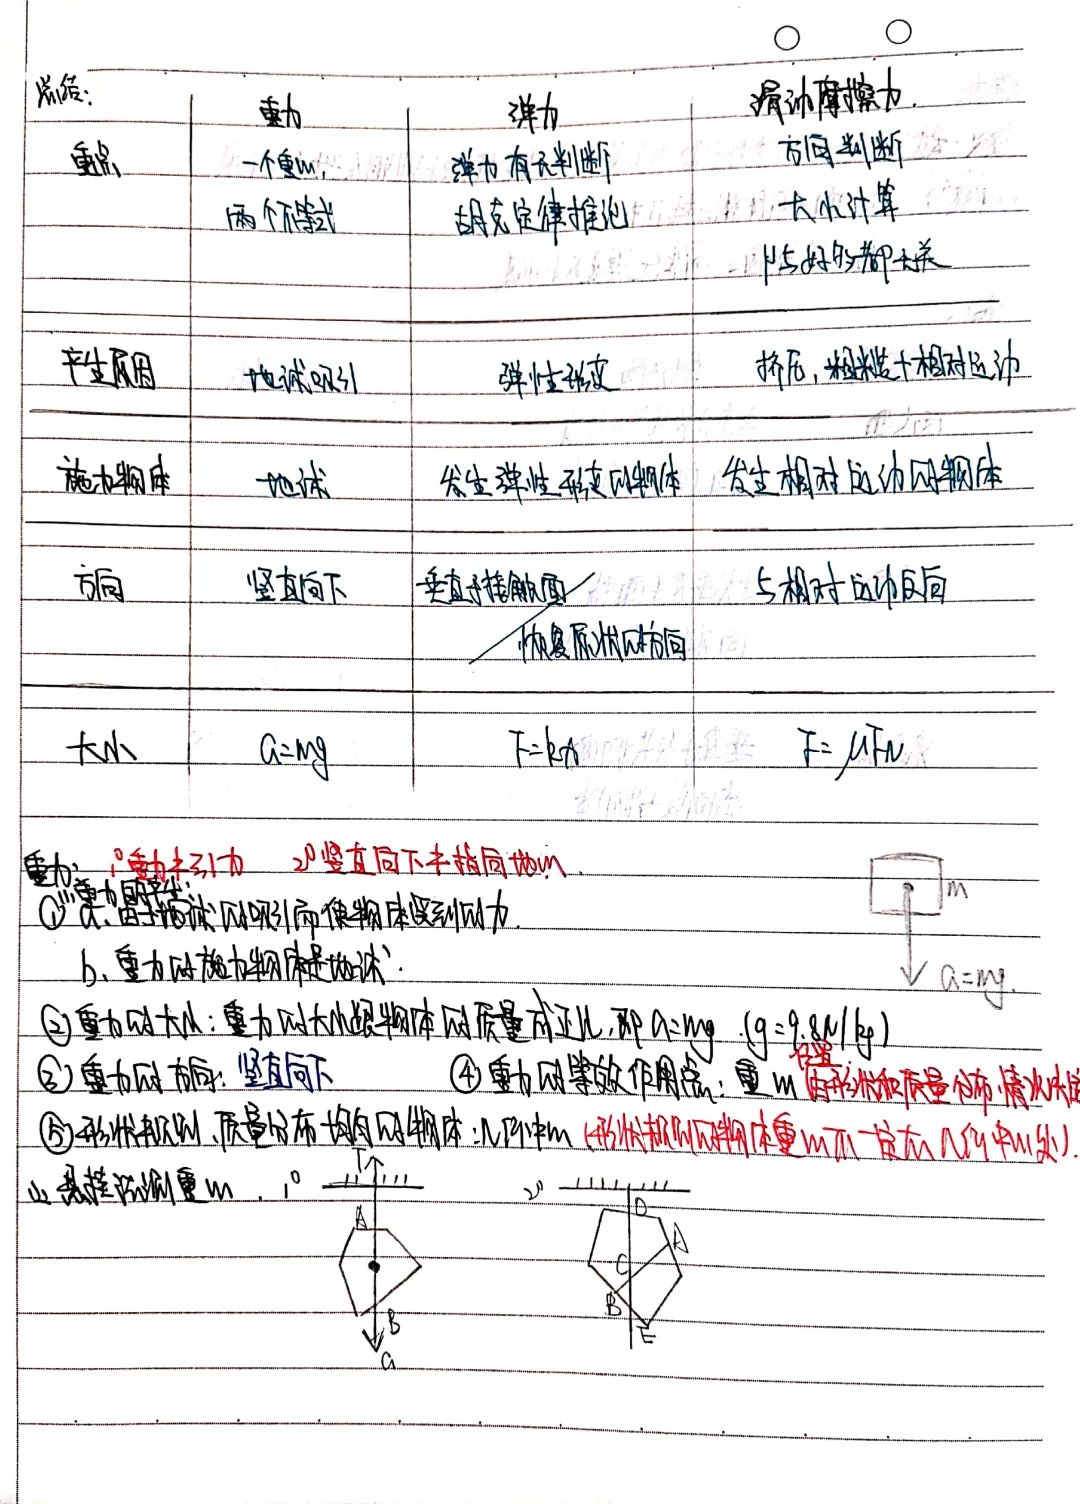 总结:
重力 弹力 滑动摩擦力.
重点 一个重心, 弹力有无判断 方向判断
两个不等式 胡克定律推论 大小计算
产生原因 地球吸引 弹性形变 挤压,粗糙+相对运动
施力物体 地球 发生弹性形变的物体 发生相对运动的物体
方向 竖直向下 垂直于接触面 与相对运动反向
恢复原状的方向
大小 G=mg F=kx F=μFN
重力: 1°重力≠引力 2°竖直向下≠指向地心.
重力的产生:
① a、由于地球的吸引而使物体受到的力.
m
b、重力的施力物体是地球.
G=mg.
②重力的大小:重力的大小跟物体的质量成正比,即G=mg.(g=9.8N/kg)
位置
③重力的方向:竖直向下 ④重力的等效作用点:重心 由形状和质量分布情况决定
⑤形状规则、质量分布均匀的物体:几何中心(形状规则的物体重心不一定在几何中心处).
悬挂法测重心. 1° T 2°
A D A
C
B B
E
G